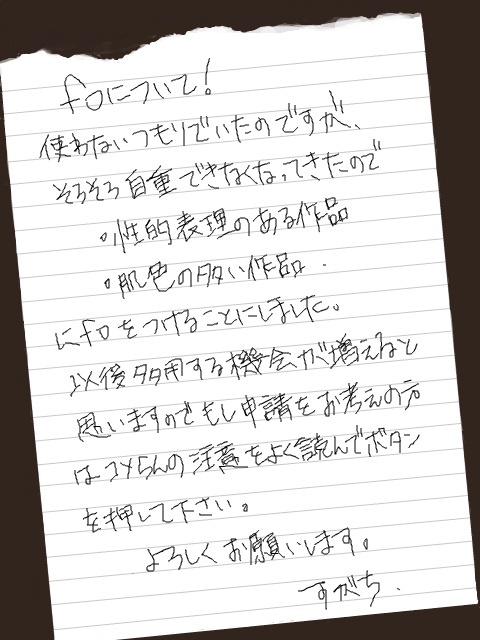 foについて!
使わないつもりでいたのですが、
そろそろ自重できなくなってきたので
・性的表理のある作品
・肌色の多い作品.
にfoをつけることにしました。
以後多用する機会が増えると
思いますのでもし申請をお考えの方
はコメらんの注意をよく読んでボタン
を押して下さい。
よろしくお願いします。
すがち.